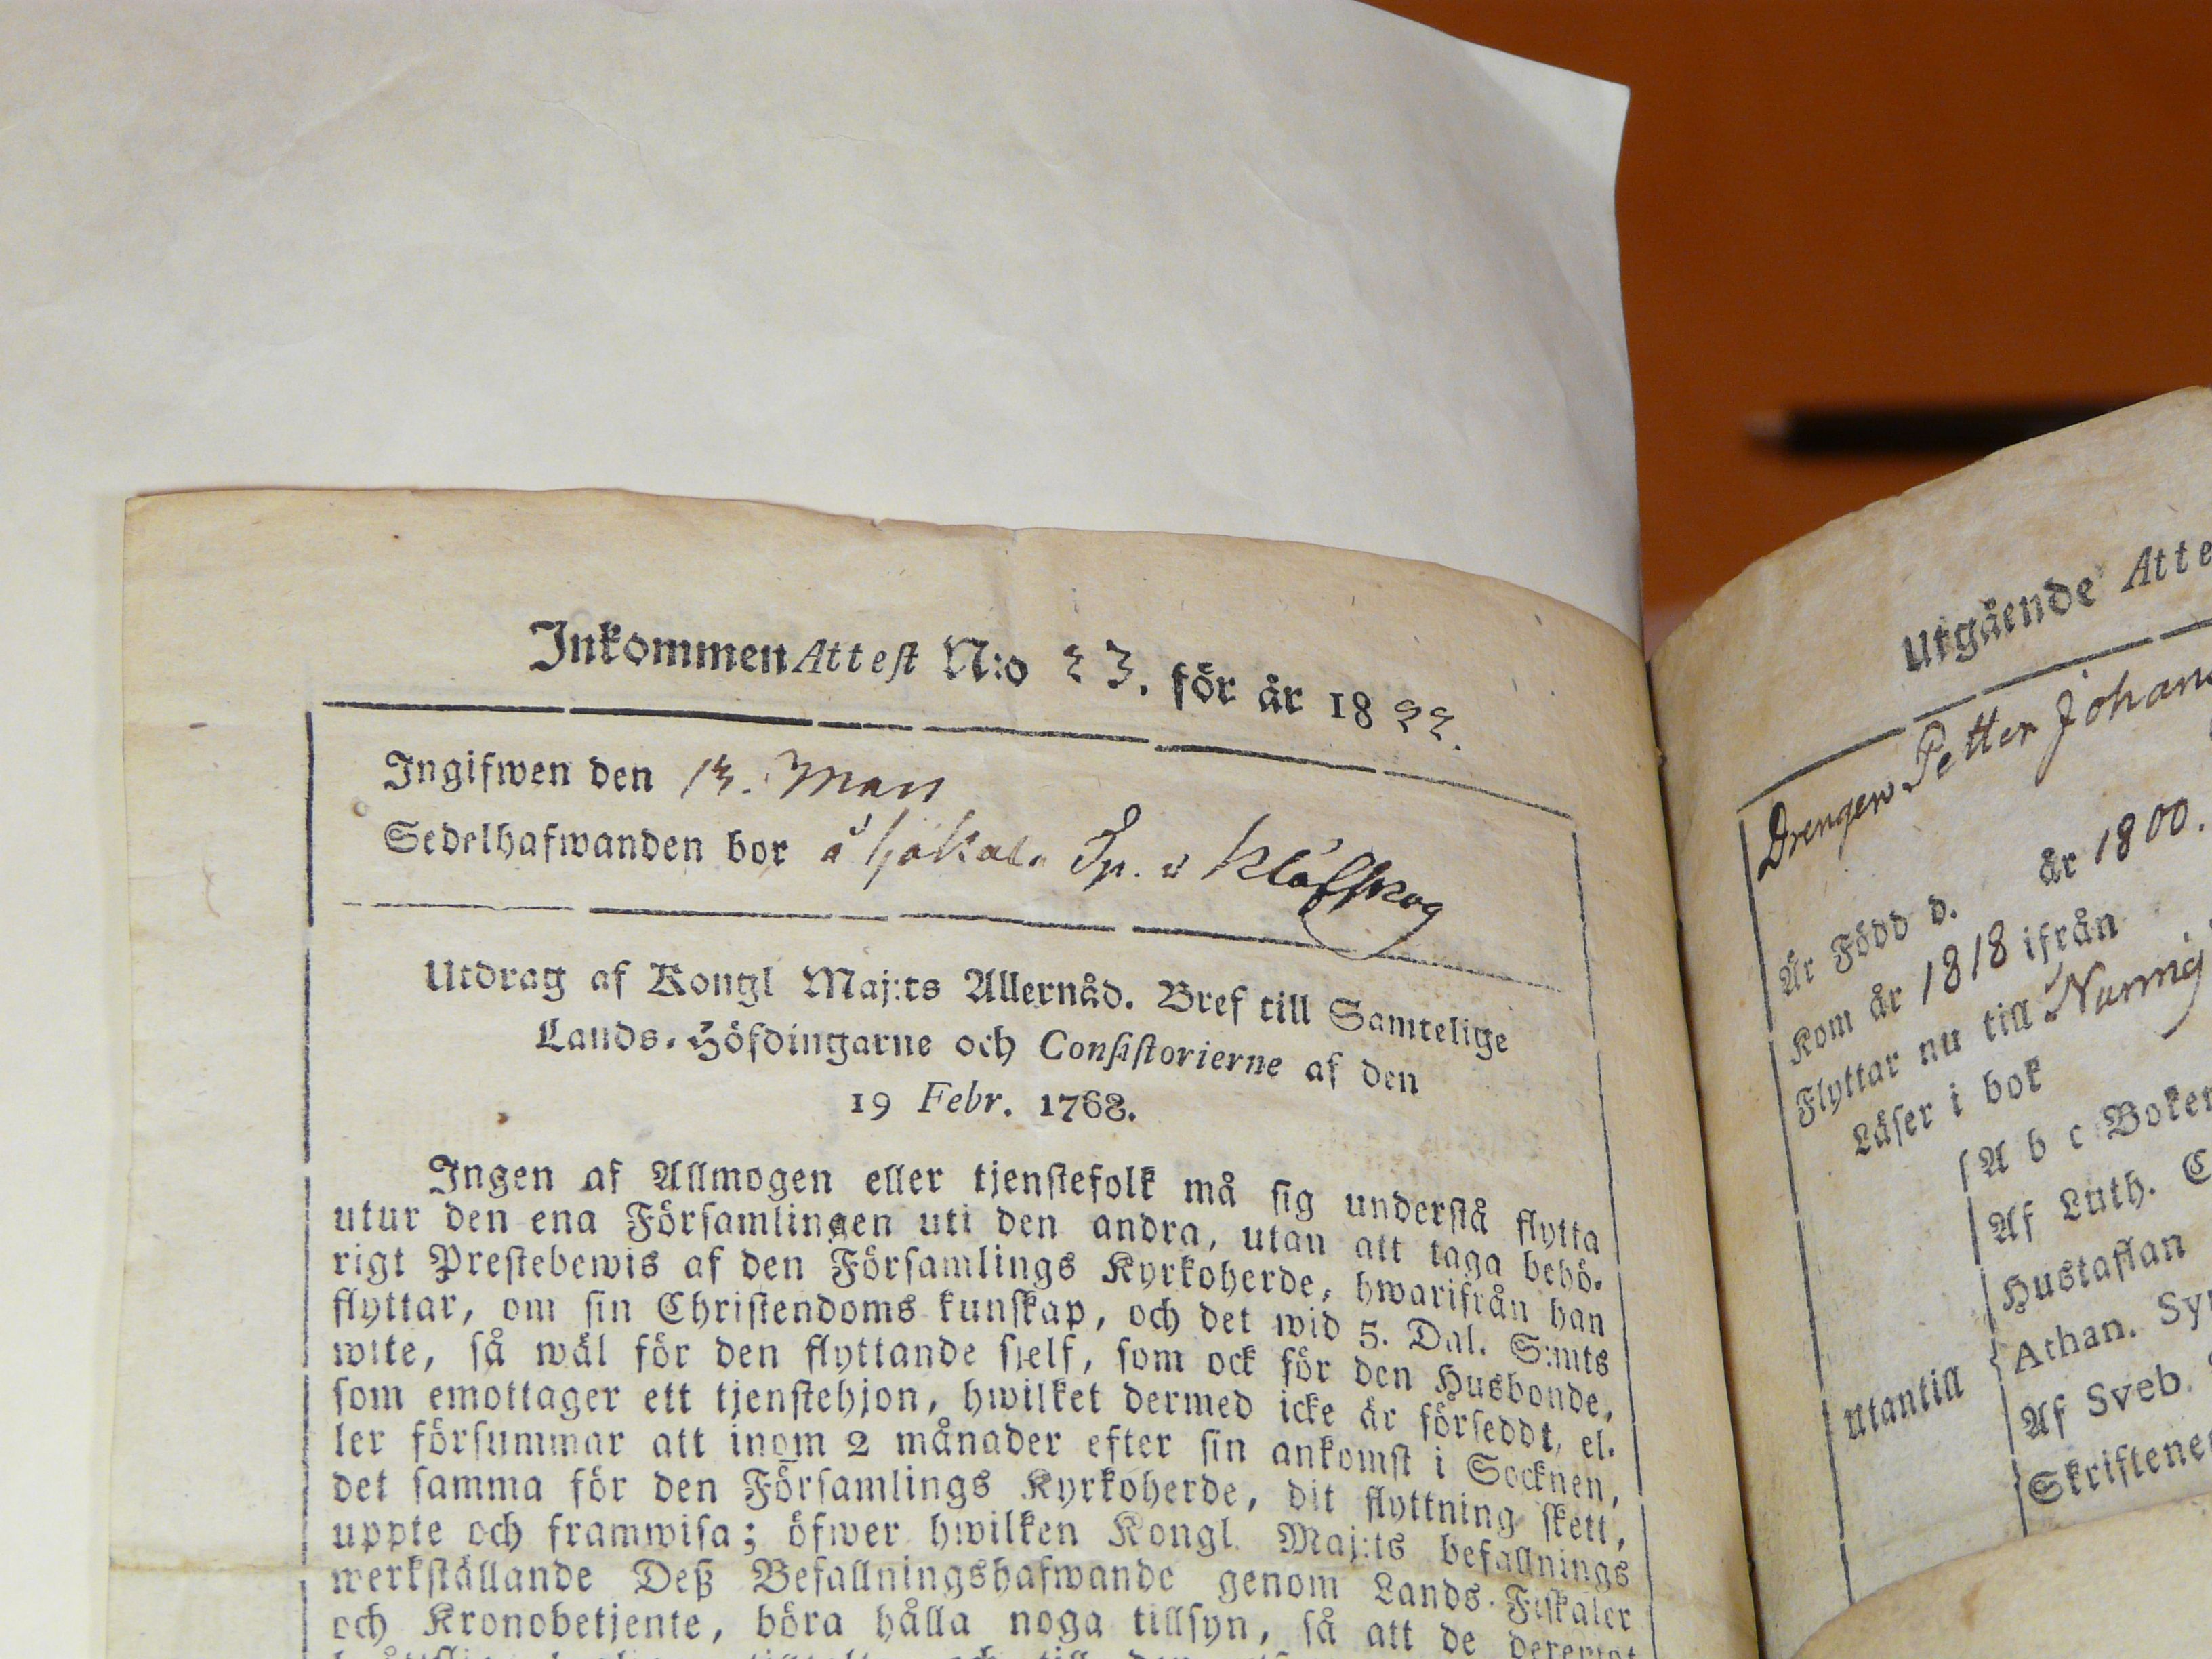 Inkommen Attest N:o 23. för år 1822.
Ingifwen den 13. Mars
Sedelhafwanden bor å
Utdrag af Kongl Maj:ts Allernåd. Bref till Samtelige
Lands-Höfdingarne och Consistorierne af den
19 Febr. 1768.
Ingen af Allmogen eller tjenstefolk må sig understå flytta
utur den ena Församlingen uti den andra, utan att taga behö-
rigt Prestebewis af den Församlings Kyrkoherde, hwarifrån han
flyttar, om sin Christendoms kunskap, och det wid 5. Dal. S:mts
wite, så wäl för den flyttande sjelf, som ock för den Husbonde,
som emottager ett tjenstehjon, hwilket dermed icke är förseddt, el-
ler försummar att inom 2 månader efter sin ankomst i Socknen,
det samma för den Församlings Kyrkoherde, dit flyttning skett,
uppte och framwisa; öfwer hwilken Kongl. Maj:ts befallnings
werkställande Deß Befallningshafwande genom Lands-Fiskaler
och Kronobetjente, böra hålla noga tillsyn, så att de
Utgående Atte
Drengen Petter Johan
Är Född d. år 1800.
Kom år 1818 ifrån
Flyttar nu till
Läser i bok
A b c Boken
Af Luth. C
Hustaflan
Athan. Sy
Utantill
Af Sveb.
Skriftene